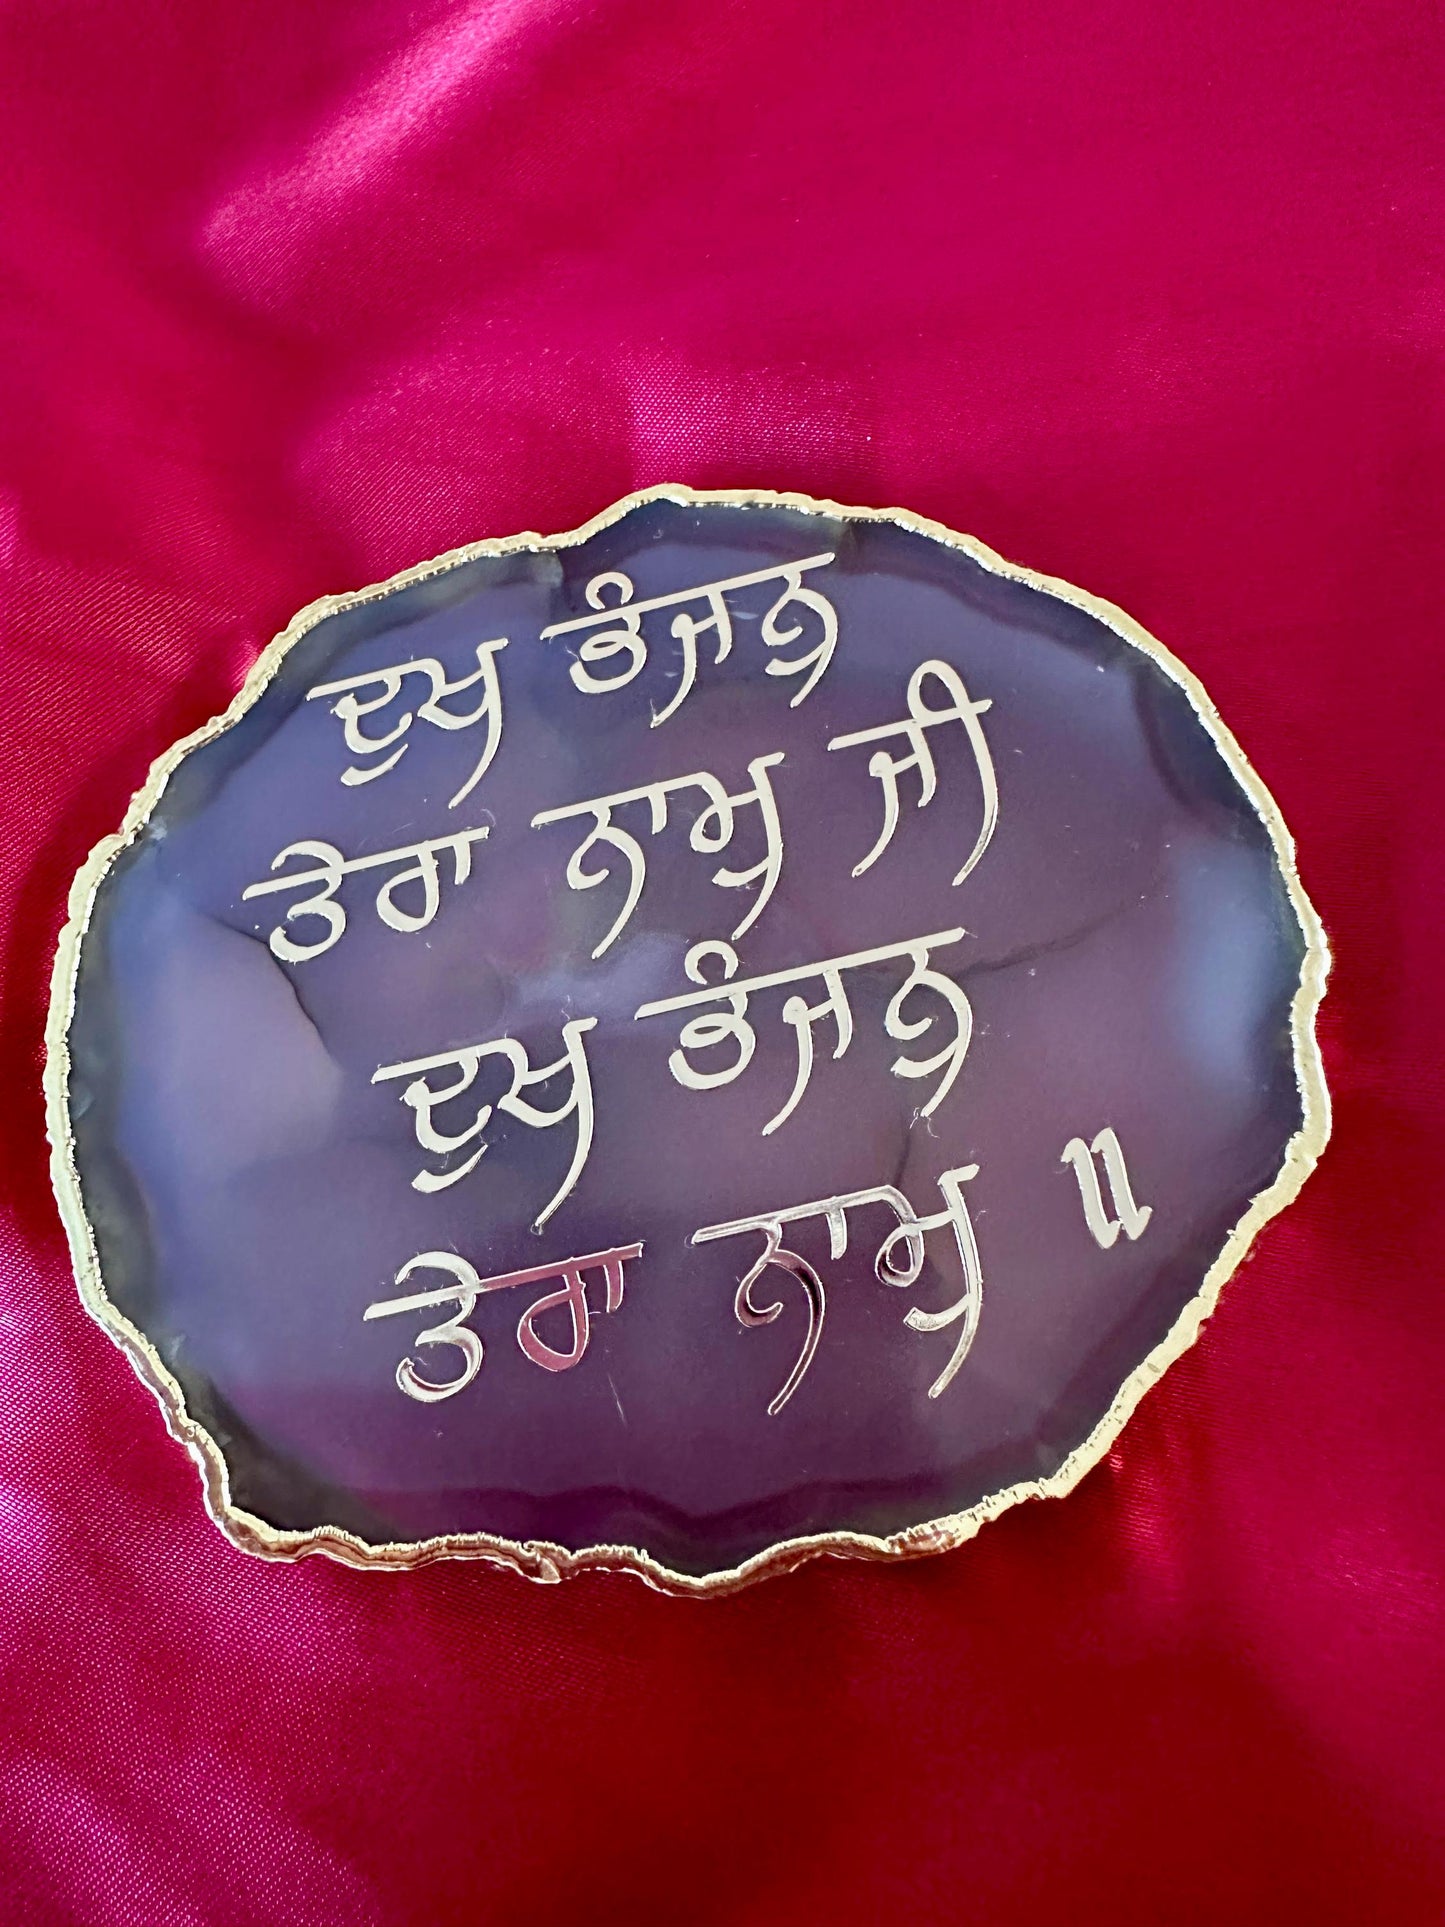 ਦੁਖ ਭੰਜਨੁ
ਤੇਰਾ ਨਾਮੁ ਜੀ
ਦੁਖ ਭੰਜਨੁ
ਤੇਰਾ ਨਾਮੁ ॥